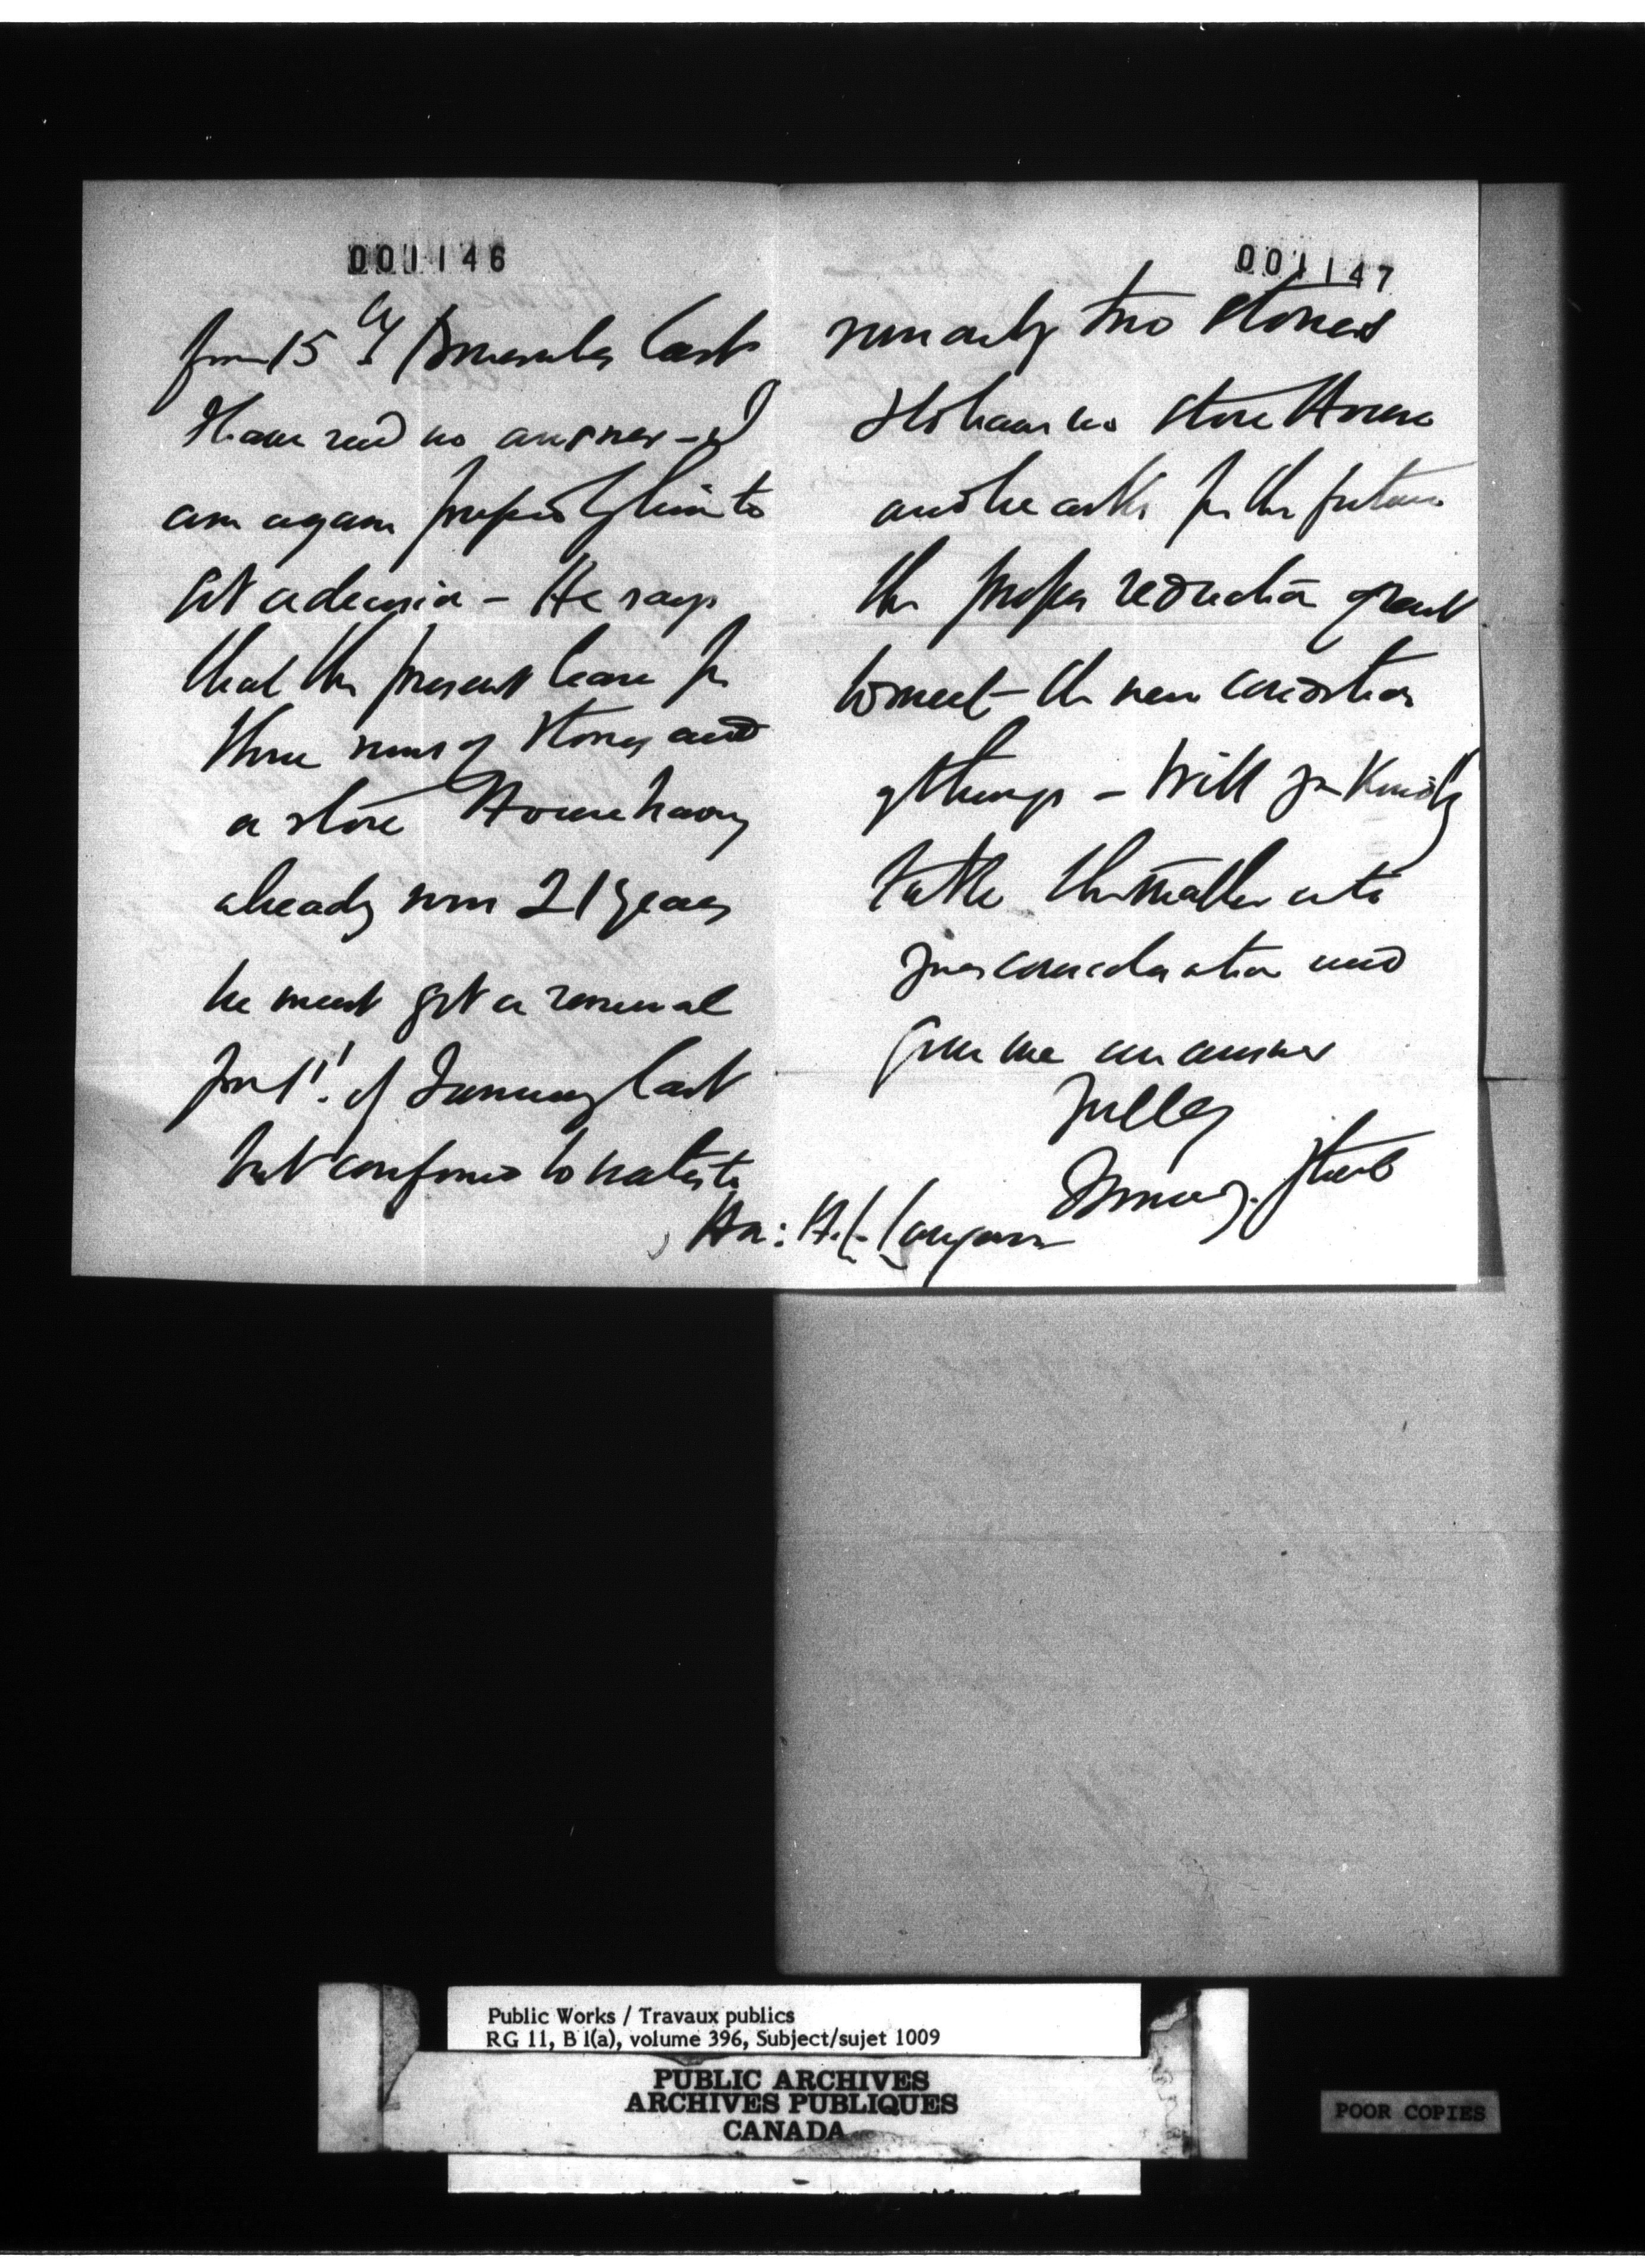 001146
from 15th December last
I have recd no answer - I
am again pressed by him to
get a decision - He says
that the present lease for
three runs of stones and
a store House having
already run 21 years
he must get a renewal
from 1st of January last
but confined to water to
001147
run only two stones
He has no store House
and he asks for the future
the proper reduction &
to meet the new condition
of things - Will you kindly
take the matter into
your consideration and
give me an answer
Yrs
Hon: H. L. Langevin
Public Works / Travaux publics
RG 11, B 1(a), volume 396, Subject/sujet 1009
PUBLIC ARCHIVES
ARCHIVES PUBLIQUES
CANADA
POOR COPIES